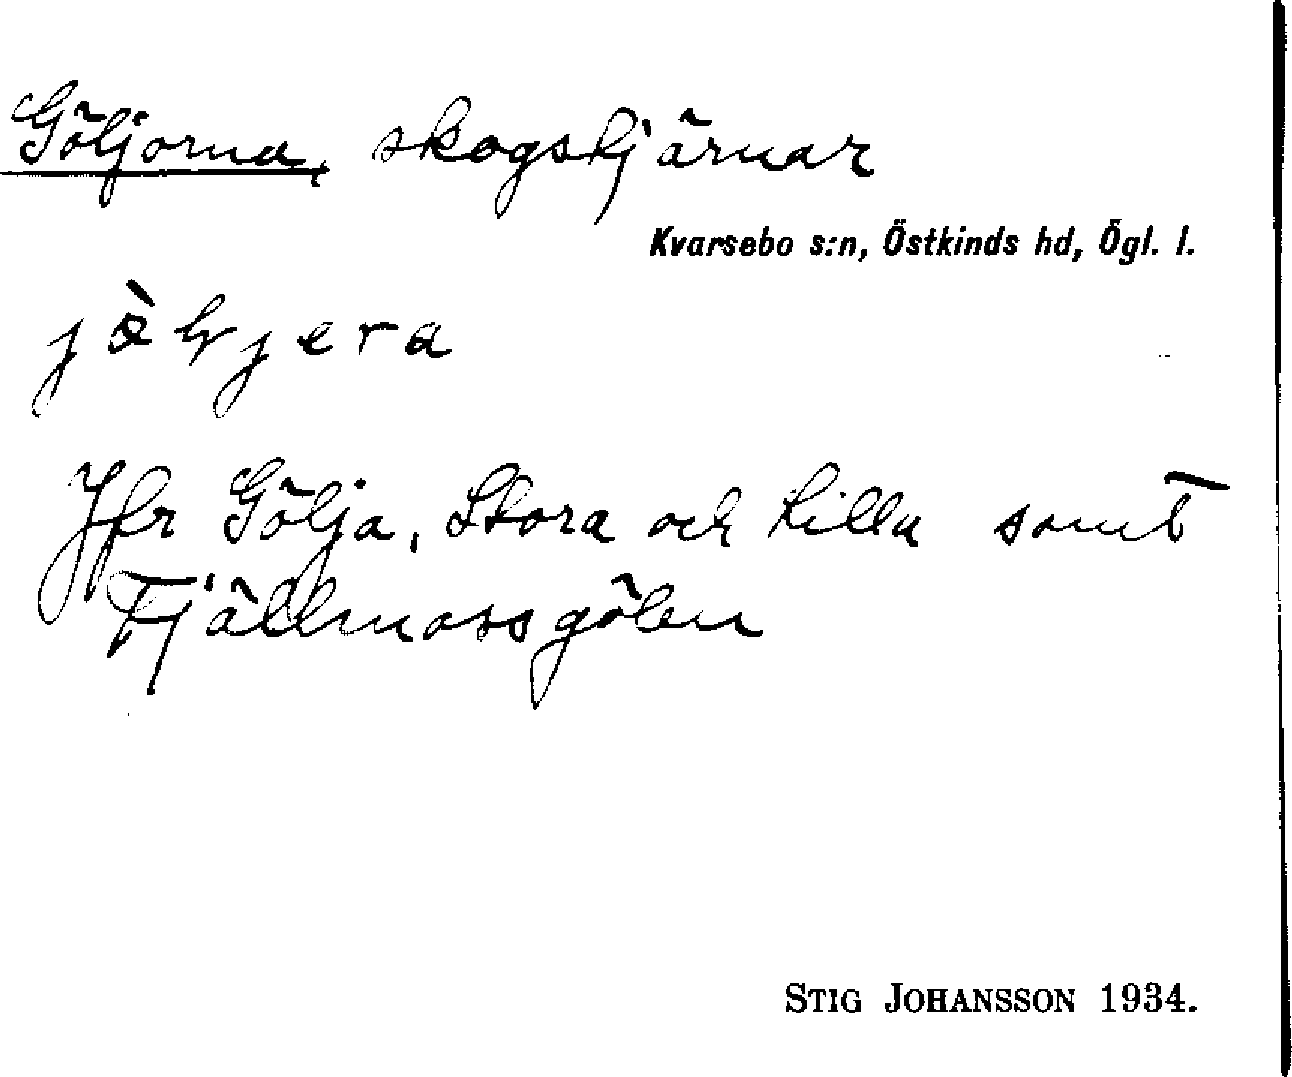 Göljorna, skogskjärnar
Kvarsebo s:n, Östkinds hd, Ögl. l.
Jfr Gölja, Stora och Lilla samt
Fjällmossgölen
STIG JOHANSSON 1934.